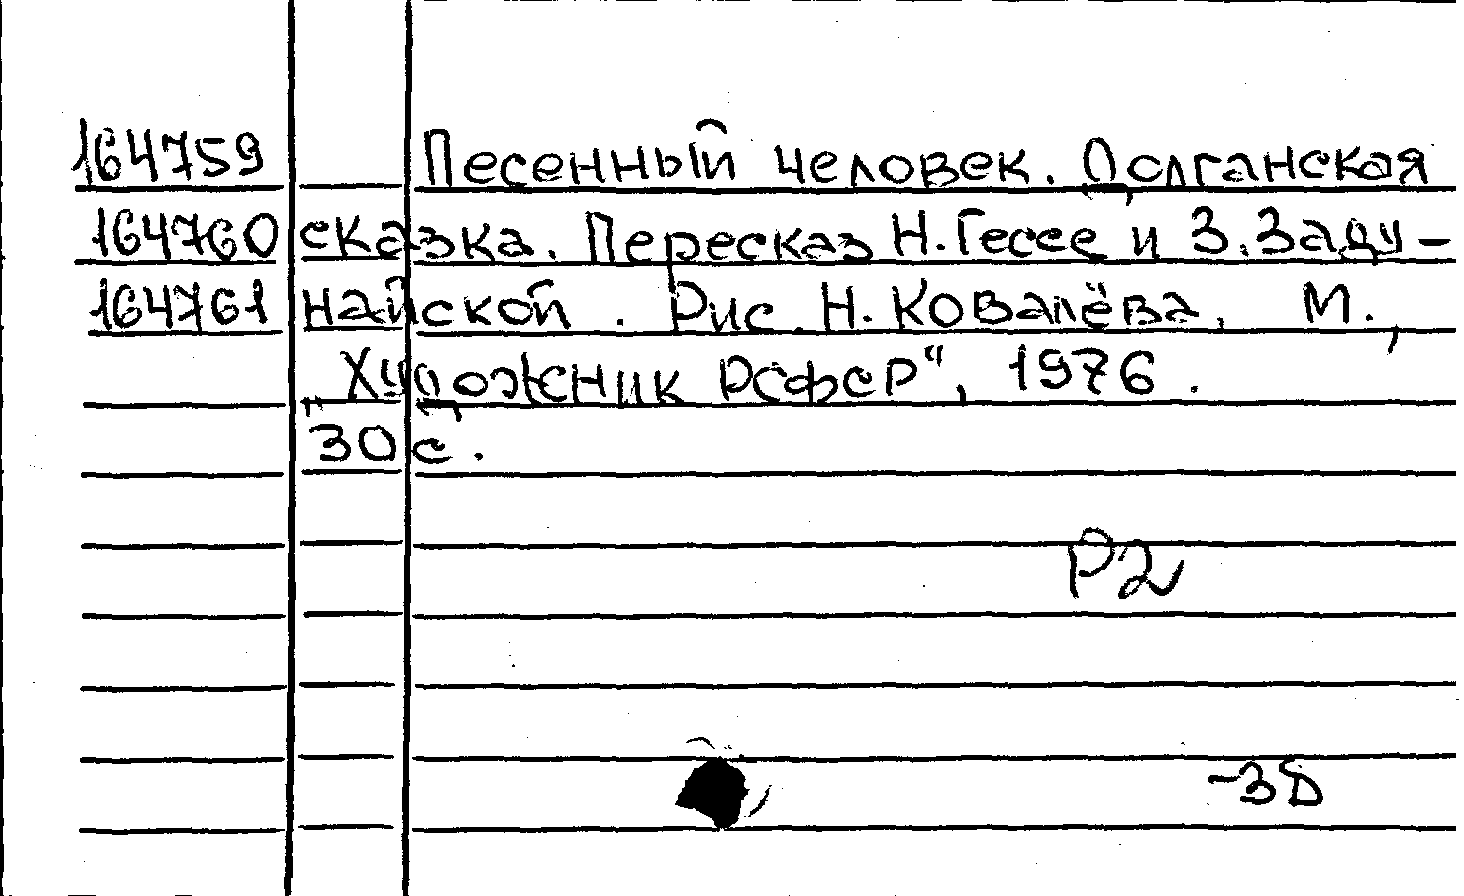 164759 Песенный человек. Долганская
164760 сказка. Пересказ Н. Гессе и З. Заду-
164761 найской. Рис. Н. Ковалёва. М.,
„Художник РСФСР“, 1976.
30 с.
Р2
-35